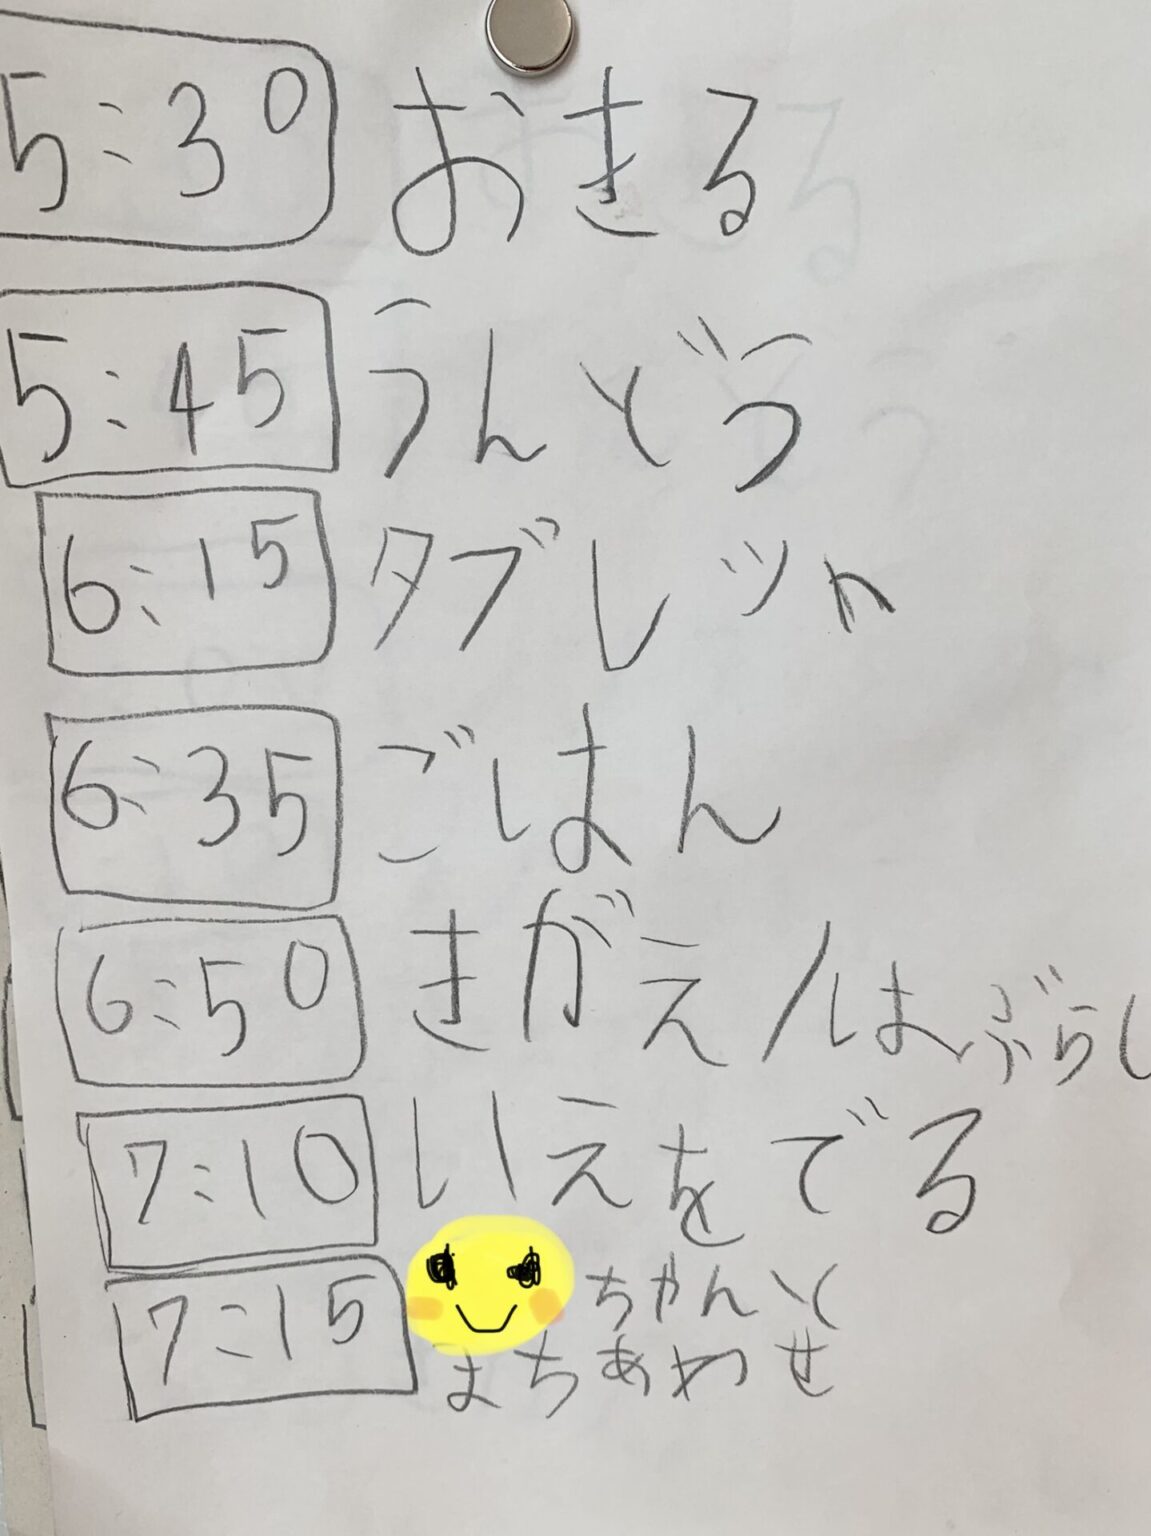 5:30 おきる
5:45 うんどう
6:15 タブレット
6:35 ごはん
6:50 きがえ/はぶらし
7:10 いえをでる
7:15 ちゃんと
まちあわせ